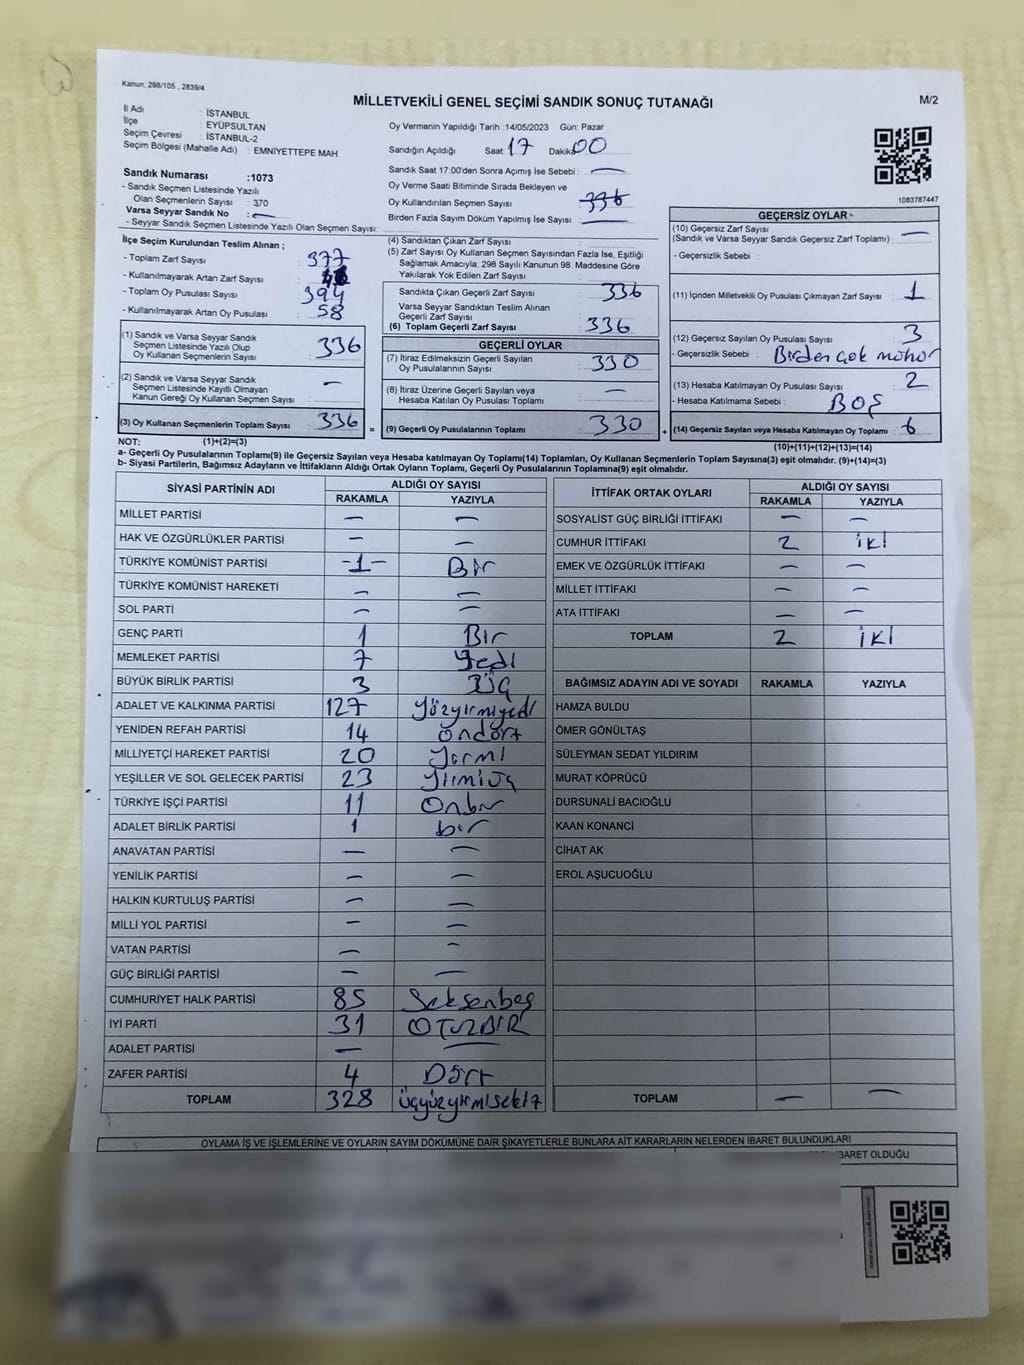 Kanun, 298/105 , 2839/4
MİLLETVEKİLİ GENEL SEÇİMİ SANDIK SONUÇ TUTANAĞI
M/2
İl Adı : İSTANBUL
İlçe : EYÜPSULTAN
Seçim Çevresi : İSTANBUL-2
Seçim Bölgesi (Mahalle Adı) : EMNİYETTEPE MAH
Oy Vermenin Yapıldığı Tarih :14/05/2023 Gün: Pazar
Sandığın Açıldığı Saat: 17 Dakika 00
Sandık Saat 17:00'den Sonra Açımış İse Sebebi : —
Oy Verme Saati Bitiminde Sırada Bekleyen ve
Oy Kullandırılan Seçmen Sayısı : 336
Birden Fazla Sayım Döküm Yapılmış İse Sayısı : —
1083787447
Sandık Numarası :1073
- Sandık Seçmen Listesinde Yazılı
Olan Seçmenlerin Sayısı : 370
Varsa Seyyar Sandık No : —
- Seyyar Sandık Seçmen Listesinde Yazılı Olan Seçmen Sayısı:
İlçe Seçim Kurulundan Teslim Alınan ;
- Toplam Zarf Sayısı : 377
- Kullanılmayarak Artan Zarf Sayısı :
- Toplam Oy Pusulası Sayısı : 394
- Kullanılmayarak Artan Oy Pusulası : 58
(1) Sandık ve Varsa Seyyar Sandık
Seçmen Listesinde Yazılı Olup
Oy Kullanan Seçmenlerin Sayısı : 336
(2) Sandık ve Varsa Seyyar Sandık
Seçmen Listesinde Kayıtlı Olmayan
Kanun Gereği Oy Kullanan Seçmen Sayısı : —
(3) Oy Kullanan Seçmenlerin Toplam Sayısı : 336 =
(4) Sandıktan Çıkan Zarf Sayısı :
(5) Zarf Sayısı Oy Kullanan Seçmen Sayısından Fazla İse, Eşitliği
Sağlamak Amacıyla, 298 Sayılı Kanunun 98. Maddesine Göre
Yakılarak Yok Edilen Zarf Sayısı :
Sandıkta Çıkan Geçerli Zarf Sayısı : 336
Varsa Seyyar Sandıktan Teslim Alınan
Geçerli Zarf Sayısı :
(6) Toplam Geçerli Zarf Sayısı : 336
GEÇERLİ OYLAR
(7) İtiraz Edilmeksizin Geçerli Sayılan
Oy Pusulalarının Sayısı : 330
(8) İtiraz Üzerine Geçerli Sayılan veya
Hesaba Katılan Oy Pusulası Toplamı : —
(9) Geçerli Oy Pusulalarının Toplamı : 330 +
GEÇERSİZ OYLAR
(10) Geçersiz Zarf Sayısı
(Sandık ve Varsa Seyyar Sandık Geçersiz Zarf Toplamı) : —
- Geçersizlik Sebebi :
(11) İçinden Milletvekili Oy Pusulası Çıkmayan Zarf Sayısı : 1
(12) Geçersiz Sayılan Oy Pusulası Sayısı : 3
- Geçersizlik Sebebi : Birden çok mühür
(13) Hesaba Katılmayan Oy Pusulası Sayısı : 2
- Hesaba Katılmama Sebebi : BOŞ
(14) Geçersiz Sayılan veya Hesaba Katılmayan Oy Toplamı : 6
NOT: (1)+(2)=(3)
(10)+(11)+(12)+(13)=(14)
a- Geçerli Oy Pusulaların Toplamı(9) ile Geçersiz Sayılan veya Hesaba katılmayan Oy Toplamı(14) Toplamları, Oy Kullanan Seçmenlerin Toplam Sayısına(3) eşit olmalıdır. (9)+(14)=(3)
b- Siyasi Partilerin, Bağımsız Adayların ve İttifakların Aldığı Ortak Oyların Toplamı, Geçerli Oy Pusulalarının Toplamına(9) eşit olmalıdır.
SİYASİ PARTİNİN ADI ALDIĞI OY SAYISI
RAKAMLA YAZIYLA
MİLLET PARTİSİ — —
HAK VE ÖZGÜRLÜKLER PARTİSİ — —
TÜRKİYE KOMÜNİST PARTİSİ -1- Bir
TÜRKİYE KOMÜNİST HAREKETİ — —
SOL PARTİ — —
GENÇ PARTİ 1 Bir
MEMLEKET PARTİSİ 7 Yedi
BÜYÜK BİRLİK PARTİSİ 3 Üç
ADALET VE KALKINMA PARTİSİ 127 Yüzyirmiyedi
YENİDEN REFAH PARTİSİ 14 Ondört
MİLLİYETÇİ HAREKET PARTİSİ 20 Yirmi
YEŞİLLER VE SOL GELECEK PARTİSİ 23 Yirmiüç
TÜRKİYE İŞÇİ PARTİSİ 11 Onbir
ADALET BİRLİK PARTİSİ 1 bir
ANAVATAN PARTİSİ — —
YENİLİK PARTİSİ — —
HALKIN KURTULUŞ PARTİSİ — —
MİLLİ YOL PARTİSİ — —
VATAN PARTİSİ — —
GÜÇ BİRLİĞİ PARTİSİ — —
CUMHURİYET HALK PARTİSİ 85 Seksenbeş
İYİ PARTİ 31 OTUZBİR
ADALET PARTİSİ — —
ZAFER PARTİSİ 4 Dört
TOPLAM 328 üçyüzyirmisekiz
İTTİFAK ORTAK OYLARI ALDIĞI OY SAYISI
RAKAMLA YAZIYLA
SOSYALİST GÜÇ BİRLİĞİ İTTİFAKI — —
CUMHUR İTTİFAKI 2 iki
EMEK VE ÖZGÜRLÜK İTTİFAKI — —
MİLLET İTTİFAKI — —
ATA İTTİFAKI — —
TOPLAM 2 iki
BAĞIMSIZ ADAYIN ADI VE SOYADI RAKAMLA YAZIYLA
HAMZA BULDU
ÖMER GÖNÜLTAŞ
SÜLEYMAN SEDAT YILDIRIM
MURAT KÖPRÜCÜ
DURSUNALİ BACIOĞLU
KAAN KONANCİ
CİHAT AK
EROL AŞUCUOĞLU
TOPLAM — —
OYLAMA İŞ VE İŞLEMLERİNE VE OYLARIN SAYIM DÖKÜMÜNE DAİR ŞİKAYETLERLE BUNLARA AİT KARARLARIN NELERDEN İBARET BULUNDUKLARI
İBARET OLDUĞU